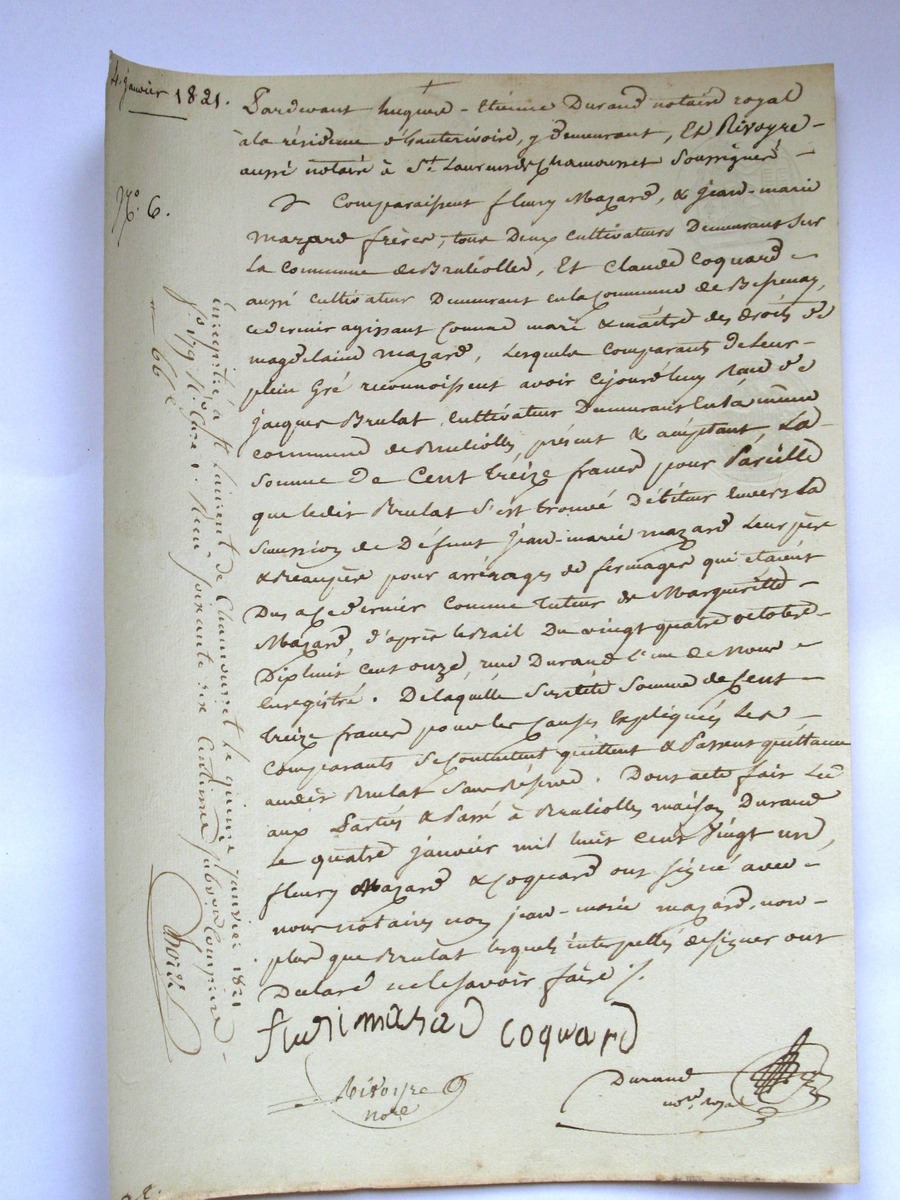 4. janvier 1821.
N.o 6.
Pardevant hugues - Etienne Durand notaire royal
à la résidence d'hauterivoire, y demeurant, et Rivoyre -
aussi notaire à St. Laurens de Chamousset Soussignés -
Comparaissent fleury Mazard, & jean-marie
mazard frères, tous Deux cultivateurs Demeurant sur
La Commune de Brulioller, Et Claude Coquard -
aussi cultivateur Demeurant en la Commune de Bessenay,
cedernier agissant comme mari & maître des droits de
magdelaine mazard, Lesquels comparants de leur -
plein Gré reconnoissent avoir cejourd'huy recu de
jacques Brulat cultivateur Demeurant en la même
commune de Brulioller, présent & acceptant La
Somme De Cent treize francs pour Pareille
que ledit Brulat s'est trouvé débiteur Envers La
Succession de Défunt jean-marie mazard Leur père
& Beaupère pour arrérages de fermages qui étaient
Dus a ce dernier comme tuteur de Margueritte -
Mazard, d'après le Bail Du vingt quatre octobre
Dixhuit cent onze, reçu Durand l'un de Nous -
Enregistré. De laquelle Susdite Somme de Cent -
treize francs pour les causes Expliquées Les -
Comparants Se contentent quittent & Passent quittance
audit Brulat Sans Réserve. Dont acte fait Lu
aux Parties & Passé à Brulioller maison Durand
Le quatre janvier mil huit cent vingt un,
fleury Mazard & Coquard ont signé avec -
nous notaires non jean-marie mazard, non -
plus que Brulat lesquels interpellés de signer ont
Declaré ne le savoir faire /.
fleuri mazard Coquard
Rivoyre
no.re
Durand
no.re royal
Enregistré à St Laurent de Chamousset le quinze janvier 1821
f.o 179 R.o Case 1. Reçu soixante six Centimes subvention Comprise -
66 c